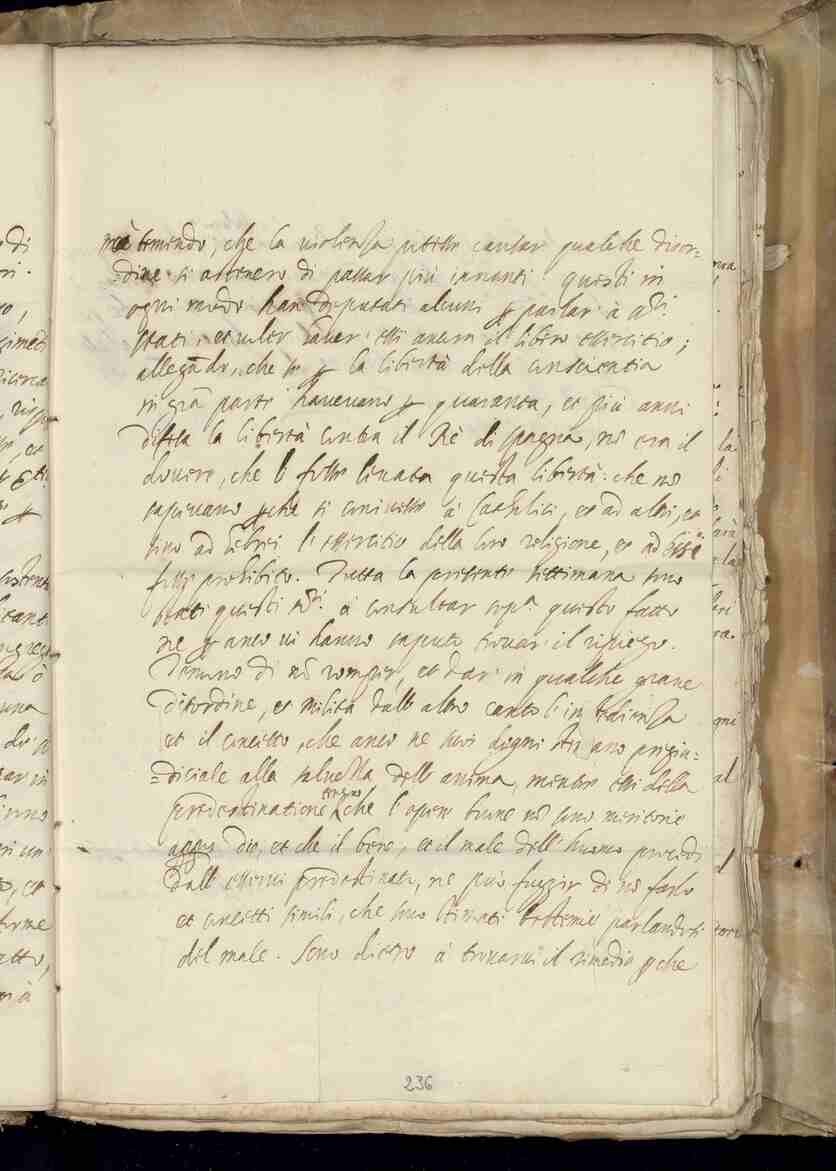 mà temendo, che la violenza potesse causar qualche disor=
=dine si astenero di passar più innanti: questi in
ogni modo han deputati alcuni ꝑ parlar à q̃sti
stati, et voler haver essi ancora il libero essercitio;
allegãdo, che se ꝑ la libertà della conscientia
in grã parte havevano ꝑ quaranta, et più anni
difesa la libertà contra il Rè di spagna, nõ era il
dovere, che le fosse levata questa libertà: che nõ
sapevano ꝑche si concesse à Catholici, et ad altri, et
sino ad hebrei l'essercitio della loro religione, et ad essi
fosse prohibito. Tutta la presente settimana sono
stati questi à consultar sopᵃ questo fatto
ne ꝑ anco vi hanno saputo trovar il ripiego.
Temono di nõ romper, et dar in qualche grave
disordine, et milita dall altro canto l'
et il concetto, che anco ne suoi dogmi ano pregiu=
=diciale alla salvezza dell anima, mentre essi della
predestinatione tengono che l'opere buone nõ sono meritorie
appo Dio, et che il bene, et il male dell' huomo procedi
dall essere predestinato, ne può fuggir di nõ farlo
et concetti simili, che sono stimati bestemie parlandosi
del male. Sono dietro à trovarvi il rimedio ꝑche
236